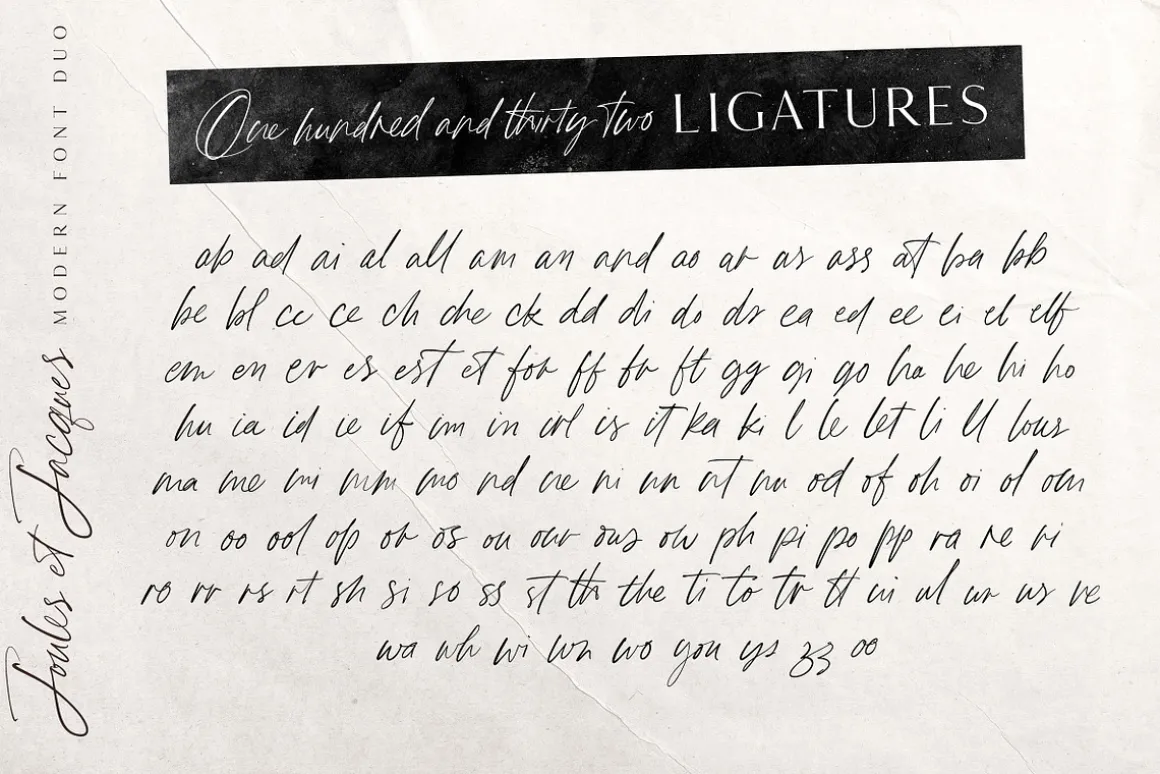 MODERN FONT DUO
Joules et Jacques
One hundred and thirty two LIGATURES
ab ad ai al all am an and ao ar as ass at ba bb
be bl cc ce ch che ck dd di do ds ea ed ee ei el elf
em en er es est et for ff fr ft gg gi go ha he hi ho
hu ia id ie if im in irl is it ka ki l le let li ll lous
ma me mi mm mo nd ne ni nn nt nu od of oh oi ol om
on oo ool op or os ou our ous ow ph pi po pp ra re ri
ro rr rs rt sh si so ss st th the ti to tr tt ui ul ur us ve
wa wh wi wn wo you ys zz oo